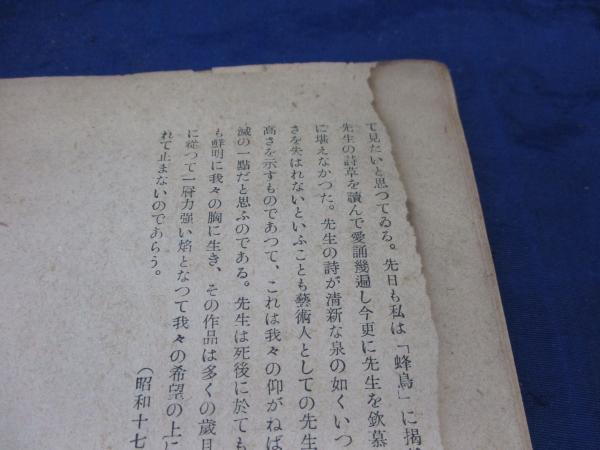 て見たいと思つてゐる。先日も私は「蜂鳥」に掲
先生の詩草を讀んで愛誦幾遍し今更に先生を欽慕
に堪えなかつた。先生の詩が清新な泉の如くいつ
さを失はれないといふことも藝術人としての先生
高さを示すものであつて、これは我々の仰がねば
滅の一點だと思ふのである。先生は死後に於ても
も鮮明に我々の胸に生き、その作品は多くの歳月
に從つて一層力強い焰となつて我々の希望の上に
れて止まないのであらう。
（昭和十七